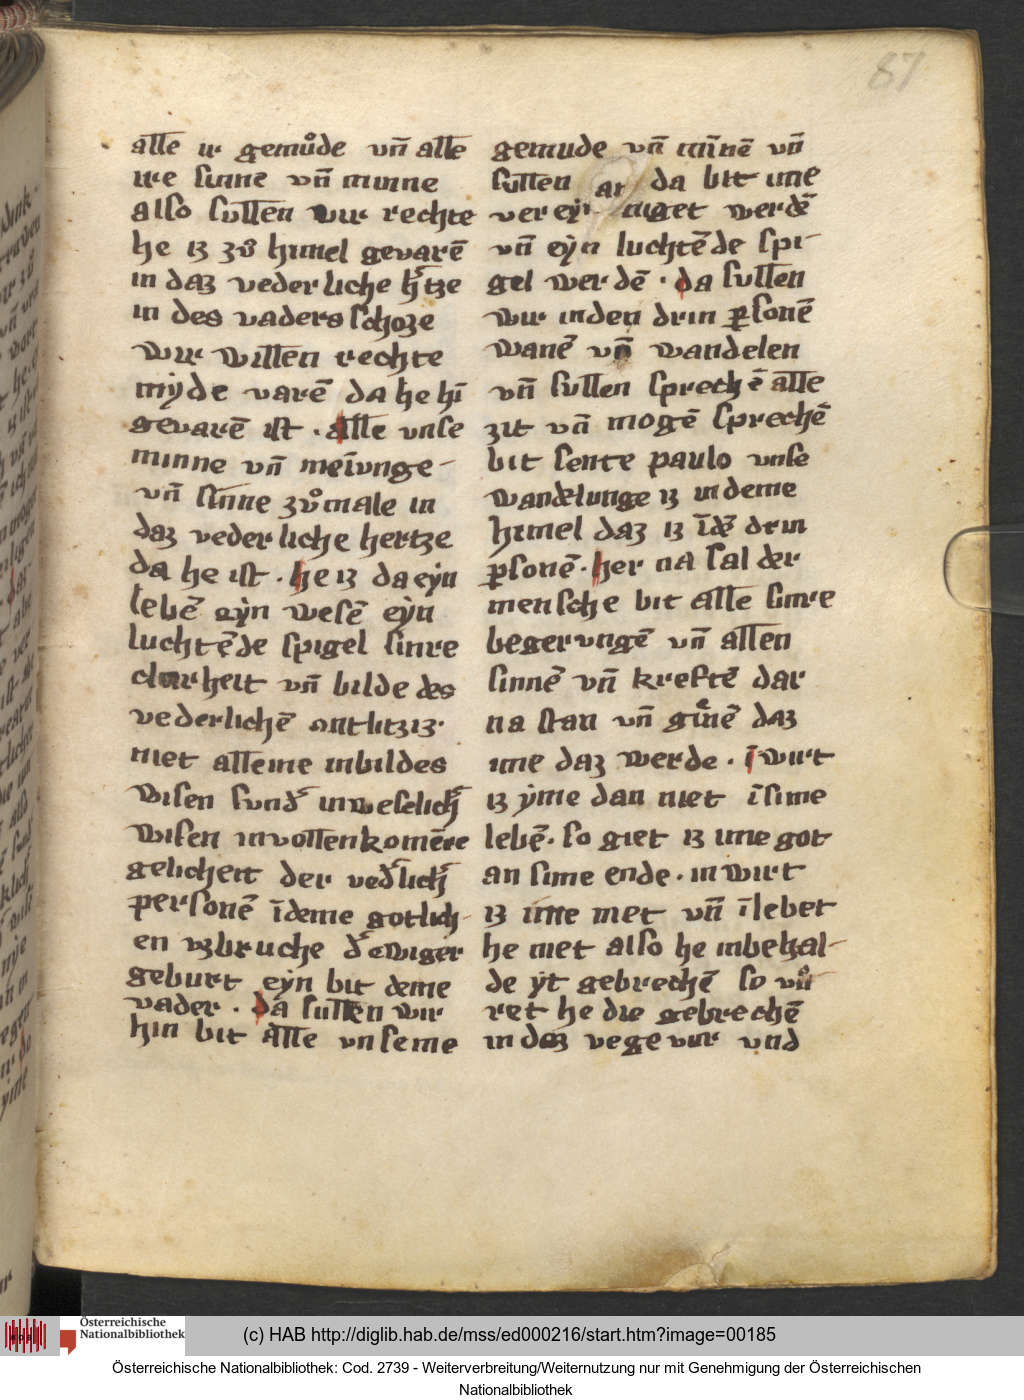 87
alle ir gemuͦde vn̄ alle
ire sinne vn̄ minne
also sullen wir rechte
he iz zuͦ himel gevarē
in daz vederliche h̄tze
in des vaders schoze
wir willen rechte
myde varē da he hī
gevarē ist · alle vnse
minne vn̄ meīunge
vn̄ sinne zvͦmale in
daz vederliche hertze
da he ist · he iz da eyn
lebē eyn wesē eyn
luchtēde spigel sinre
clarheit vn̄ bilde des
vederlichē antlitziz·
niet alleine inbildes
wisen sund' inweselich'
wisen invollenkomēre
gelicheit der ved'lich'
personē īdeme gotlich-
en vzbruche d' ewiger
geburt eyn bit deme
vader · da sullen wir
hin bit alle vnseme
gemude vn̄ mīnē vn̄
sullen ar da bit ime
vereyniget werdē
vn̄ eyn luchtēde spi-
gel werdē · da sullen
wir inden drin ꝑsonē
wanē vn̄ wandelen
vn̄ sullen sprechē alle
zit vn̄ mogē sprechē
bit sente paulo vnse
wandelunge iz indeme
himel daz iz īdē drin
ꝑsonē · her na sal der
mensche bit alle sinre
begerungē vn̄ allen
sinnē vn̄ kreftē dar
na stan vn̄ ginē daz
ime daz werde · ī wirt
iz yme dan niet īsime
lebē· so giet iz ime got
an sime ende · inwirt
iz ime niet vn̄ īlebet
he niet also he inbehal-
de yt gebrechē so vuͦ-
ret he die gebrechē
in daz vegevur vnd
Österreichische
Nationalbibliothek
(c) HAB http://diglib.hab.de/mss/ed000216/start.htm?image=00185
Österreichische Nationalbibliothek: Cod. 2739 - Weiterverbreitung/Weiternutzung nur mit Genehmigung der Österreichischen
Nationalbibliothek